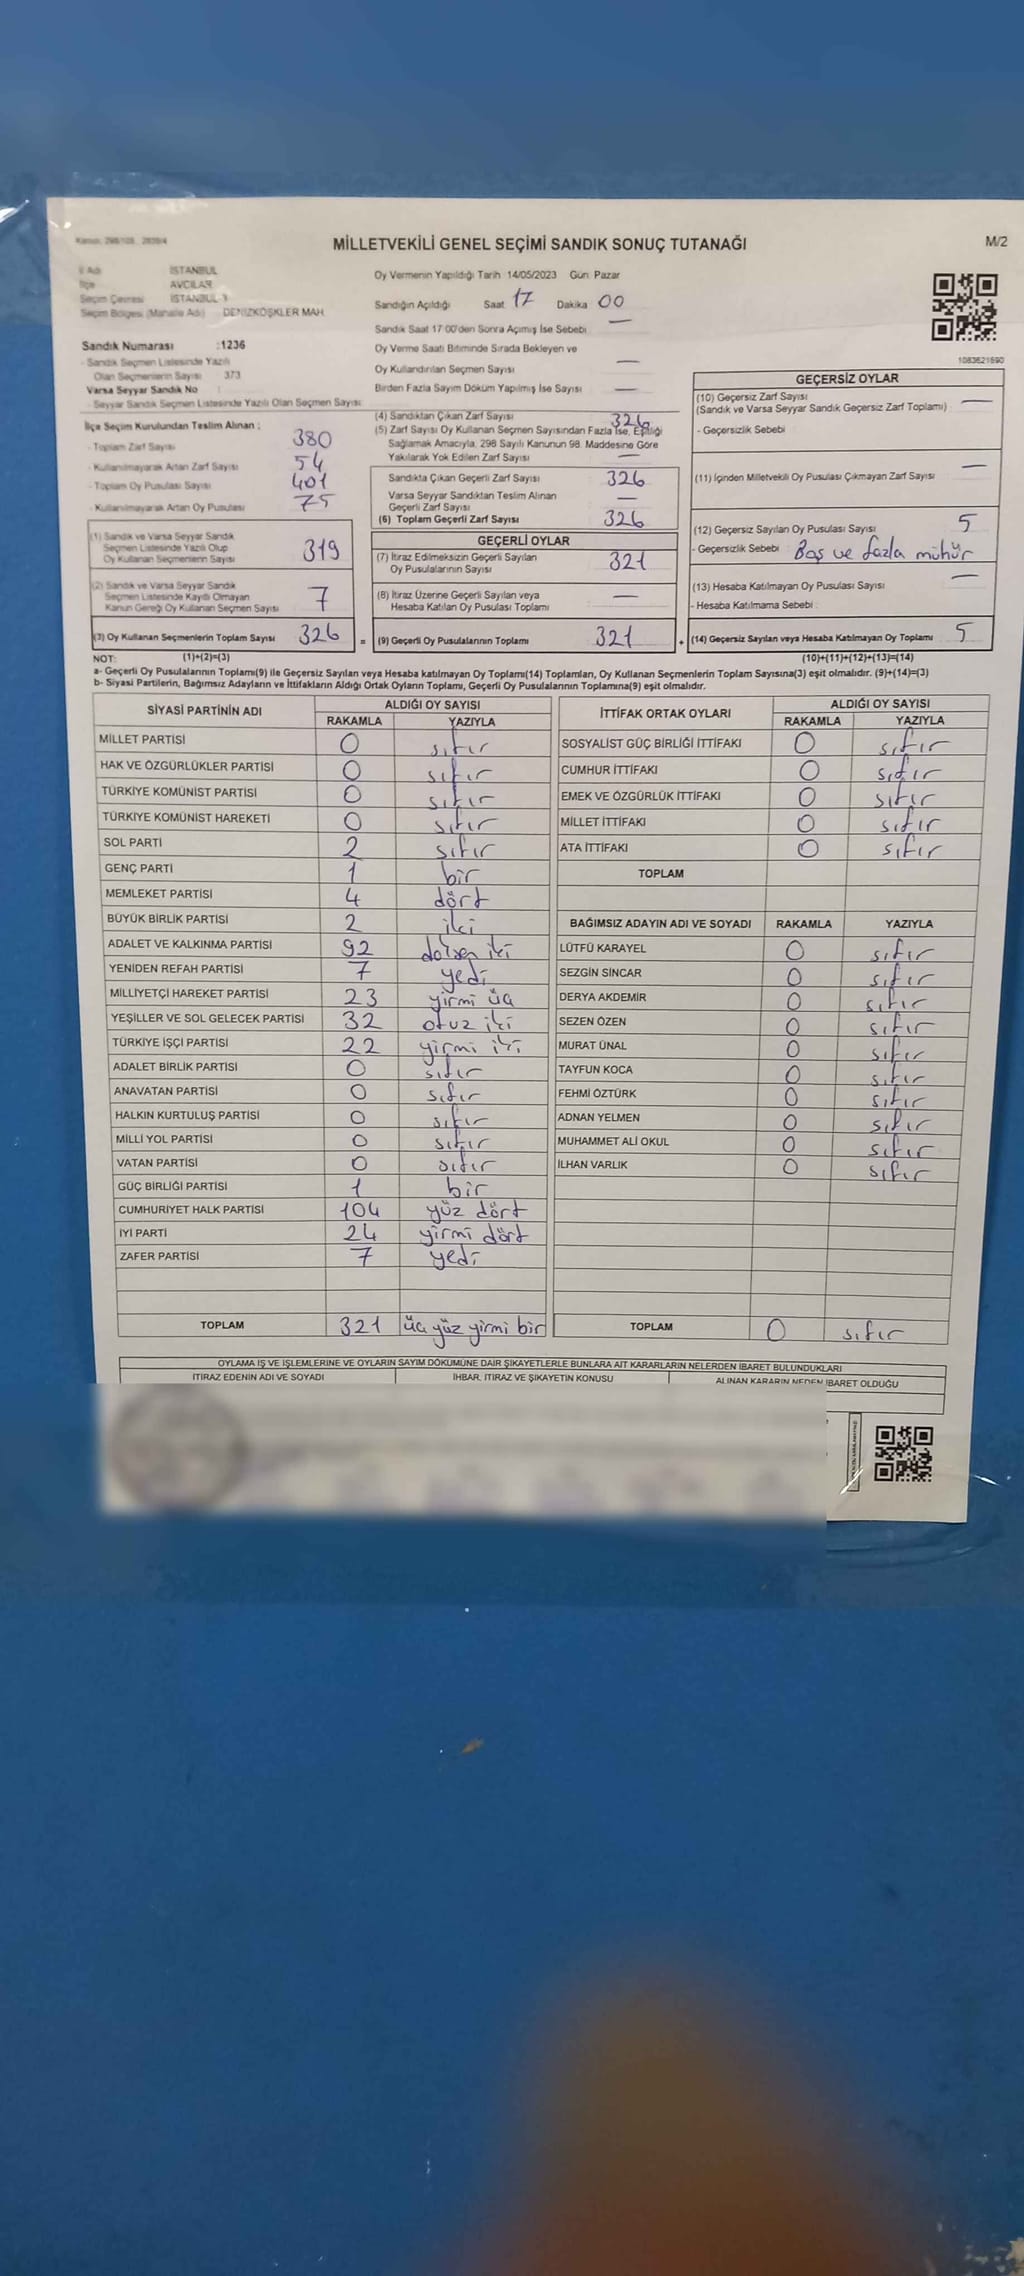 Kanun: 298/105, 2839/4
MİLLETVEKİLİ GENEL SEÇİMİ SANDIK SONUÇ TUTANAĞI
M/2
İl Adı İSTANBUL
İlçe AVCILAR
Seçim Çevresi İSTANBUL-3
Seçim Bölgesi (Mahalle Adı) DENİZKÖŞKLER MAH.
Sandık Numarası :1236
- Sandık Seçmen Listesinde Yazılı
Olan Seçmenlerin Sayısı : 373
Varsa Seyyar Sandık No :
- Seyyar Sandık Seçmen Listesinde Yazılı Olan Seçmen Sayısı:
Oy Vermenin Yapıldığı Tarih 14/05/2023 Gün Pazar
Sandığın Açıldığı Saat 17 Dakika 00
Sandık Saat 17:00'den Sonra Açılmış İse Sebebi —
Oy Verme Saati Bitiminde Sırada Bekleyen ve
Oy Kullandırılan Seçmen Sayısı —
Birden Fazla Sayım Döküm Yapılmış İse Sayısı —
1083621690
İlçe Seçim Kurulundan Teslim Alınan :
- Toplam Zarf Sayısı 380
- Kullanılmayarak Artan Zarf Sayısı 54
- Toplam Oy Pusulası Sayısı 401
- Kullanılmayarak Artan Oy Pusulası 75
(1) Sandık ve Varsa Seyyar Sandık
Seçmen Listesinde Yazılı Olup
Oy Kullanan Seçmenlerin Sayısı 319
(2) Sandık ve Varsa Seyyar Sandık
Seçmen Listesinde Kayıtlı Olmayan
Kanun Gereği Oy Kullanan Seçmen Sayısı 7
(3) Oy Kullanan Seçmenlerin Toplam Sayısı 326 =
(4) Sandıktan Çıkan Zarf Sayısı 326
(5) Zarf Sayısı Oy Kullanan Seçmen Sayısından Fazla İse, Eşitliği
Sağlamak Amacıyla, 298 Sayılı Kanunun 98. Maddesine Göre
Yakılarak Yok Edilen Zarf Sayısı —
Sandıkta Çıkan Geçerli Zarf Sayısı 326
Varsa Seyyar Sandıktan Teslim Alınan
Geçerli Zarf Sayısı —
(6) Toplam Geçerli Zarf Sayısı 326
GEÇERLİ OYLAR
(7) İtiraz Edilmeksizin Geçerli Sayılan
Oy Pusulalarının Sayısı 321
(8) İtiraz Üzerine Geçerli Sayılan veya
Hesaba Katılan Oy Pusulası Toplamı —
(9) Geçerli Oy Pusulalarının Toplamı 321 +
GEÇERSİZ OYLAR
(10) Geçersiz Zarf Sayısı —
(Sandık ve Varsa Seyyar Sandık Geçersiz Zarf Toplamı)
- Geçersizlik Sebebi :
(11) İçinden Milletvekili Oy Pusulası Çıkmayan Zarf Sayısı —
(12) Geçersiz Sayılan Oy Pusulası Sayısı 5
- Geçersizlik Sebebi : Boş ve fazla mühür
(13) Hesaba Katılmayan Oy Pusulası Sayısı —
- Hesaba Katılmama Sebebi :
(14) Geçersiz Sayılan veya Hesaba Katılmayan Oy Toplamı 5
NOT: (1)+(2)=(3) (10)+(11)+(12)+(13)=(14)
a- Geçerli Oy Pusulalarının Toplamı(9) ile Geçersiz Sayılan veya Hesaba katılmayan Oy Toplamı(14) Toplamları, Oy Kullanan Seçmenlerin Toplam Sayısına(3) eşit olmalıdır. (9)+(14)=(3)
b- Siyasi Partilerin, Bağımsız Adayların ve İttifakların Aldığı Ortak Oyların Toplamı, Geçerli Oy Pusulalarının Toplamına(9) eşit olmalıdır.
SİYASİ PARTİNİN ADI ALDIĞI OY SAYISI
RAKAMLA YAZIYLA
MİLLET PARTİSİ 0 sıfır
HAK VE ÖZGÜRLÜKLER PARTİSİ 0 sıfır
TÜRKİYE KOMÜNİST PARTİSİ 0 sıfır
TÜRKİYE KOMÜNİST HAREKETİ 0 sıfır
SOL PARTİ 2 sıfır
GENÇ PARTİ 1 bir
MEMLEKET PARTİSİ 4 dört
BÜYÜK BİRLİK PARTİSİ 2 iki
ADALET VE KALKINMA PARTİSİ 92 doksen iki
YENİDEN REFAH PARTİSİ 7 yedi
MİLLİYETÇİ HAREKET PARTİSİ 23 yirmi üç
YEŞİLLER VE SOL GELECEK PARTİSİ 32 otuz iki
TÜRKİYE İŞÇİ PARTİSİ 22 yirmi iki
ADALET BİRLİK PARTİSİ 0 sıfır
ANAVATAN PARTİSİ 0 sıfır
HALKIN KURTULUŞ PARTİSİ 0 sıfır
MİLLİ YOL PARTİSİ 0 sıfır
VATAN PARTİSİ 0 sıfır
GÜÇ BİRLİĞİ PARTİSİ 1 bir
CUMHURİYET HALK PARTİSİ 104 yüz dört
İYİ PARTİ 24 yirmi dört
ZAFER PARTİSİ 7 yedi
TOPLAM 321 üç yüz yirmi bir
İTTİFAK ORTAK OYLARI ALDIĞI OY SAYISI
RAKAMLA YAZIYLA
SOSYALİST GÜÇ BİRLİĞİ İTTİFAKI 0 sıfır
CUMHUR İTTİFAKI 0 sıfır
EMEK VE ÖZGÜRLÜK İTTİFAKI 0 sıfır
MİLLET İTTİFAKI 0 sıfır
ATA İTTİFAKI 0 sıfır
TOPLAM
BAĞIMSIZ ADAYIN ADI VE SOYADI RAKAMLA YAZIYLA
LÜTFÜ KARAYEL 0 sıfır
SEZGİN SİNCAR 0 sıfır
DERYA AKDEMİR 0 sıfır
SEZEN ÖZEN 0 sıfır
MURAT ÜNAL 0 sıfır
TAYFUN KOCA 0 sıfır
FEHMİ ÖZTÜRK 0 sıfır
ADNAN YELMEN 0 sıfır
MUHAMMET ALİ OKUL 0 sıfır
İLHAN VARLIK 0 sıfır
TOPLAM 0 sıfır
OYLAMA İŞ VE İŞLEMLERİNE VE OYLARIN SAYIM DÖKÜMÜNE DAİR ŞİKAYETLERLE BUNLARA AİT KARARLARIN NELERDEN İBARET BULUNDUKLARI
İTİRAZ EDENİN ADI VE SOYADI İHBAR, İTİRAZ VE ŞİKAYETİN KONUSU ALINAN KARARIN NEDEN İBARET OLDUĞU